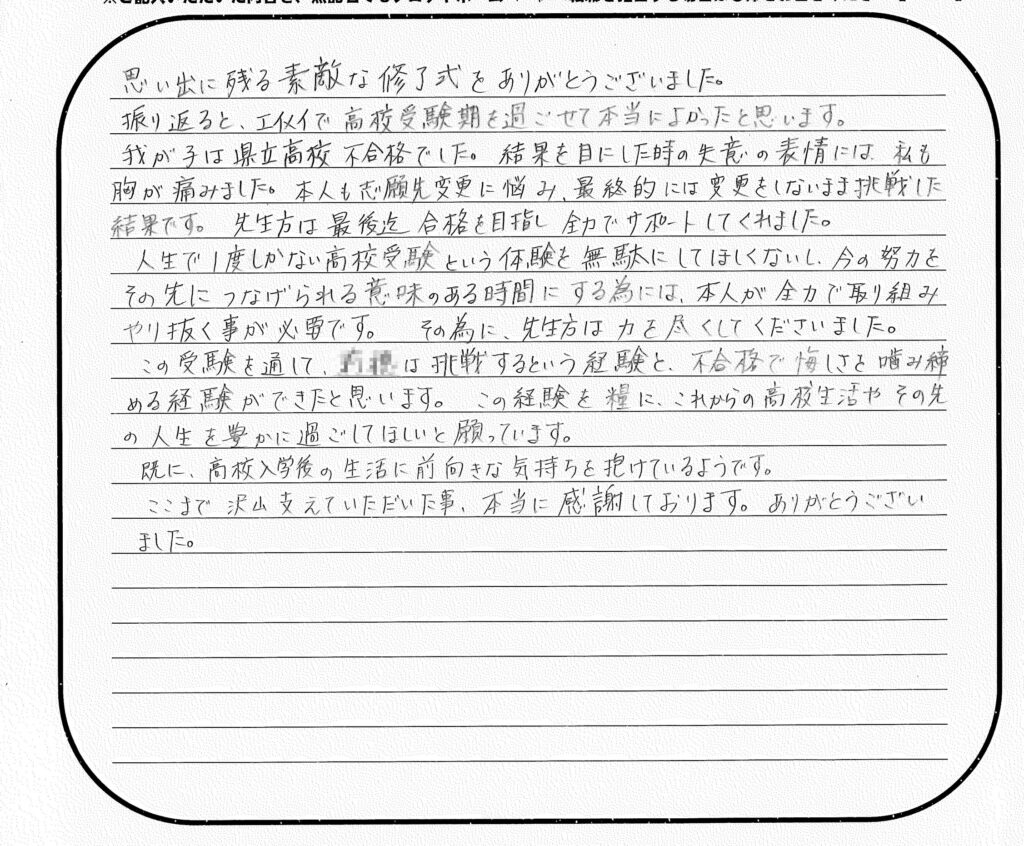 思い出に残る素敵な修了式をありがとうございました。
振り返ると、エイメイで高校受験期を過ごせて本当によかったと思います。
我が子は県立高校不合格でした。結果を目にした時の失意の表情には、私も
胸が痛みました。本人も志願先変更に悩み、最終的には変更をしないまま挑戦した
結果です。先生方は最後迄合格を目指し全力でサポートしてくれました。
人生で1度しかない高校受験という体験を無駄にしてほしくないし、今の努力を
その先につなげられる意味のある時間にする為には、本人が全力で取り組み
やり抜く事が必要です。その為に、先生方は力を尽くしてくださいました。
この受験を通して、は挑戦するという経験と、不合格で悔しさを噛み締
める経験ができたと思います。この経験を糧に、これからの高校生活やその先
の人生を豊かに過ごしてほしいと願っています。
既に、高校入学後の生活に前向きな気持ちを抱けているようです。
ここまで沢山支えていただいた事、本当に感謝しております。ありがとうござい
ました。